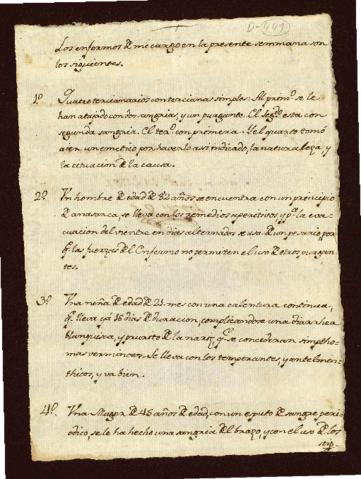 D-449
Los enfermos de mi cargo en la presente semmana son
los siguientes.
1º Quatro tercianarios con terciana simple. Al prim.º se le
han atajado con dos sangrias, y un purgante. El seg.º esta con
segunda sangria. El ter.º con primera. Y el quarto tomó
ater un emetico por haverlo asi indicado, la naturaleza, y
la situacion de la causa.
2º Un hombre de edad de 82 años se encuentra con un principio
de anasarca, se lleva con los remedios aperitivos, y p.ª la eva-
cuacion del vientre en dias alternados se usa de un por
q.e las fuerzas del Enfermo no permiten el uso de otros purgan-
tes.
3º Una niña de edad de 21 mes con una calentura continua,
q.e lleva ya 16 dias de duracion, complicandose una diarrhea
blanquisca, y prurito de la nariz q.e se consideran simptho-
mas verminosos. Se lleva con los temperantes y antelmin-
thicos, y va bien.
4º Una Muger de 45 años de edad, con un esputo de sangre perio-
dico, se le ha hecho una sangria del brazo, y con el uso de los